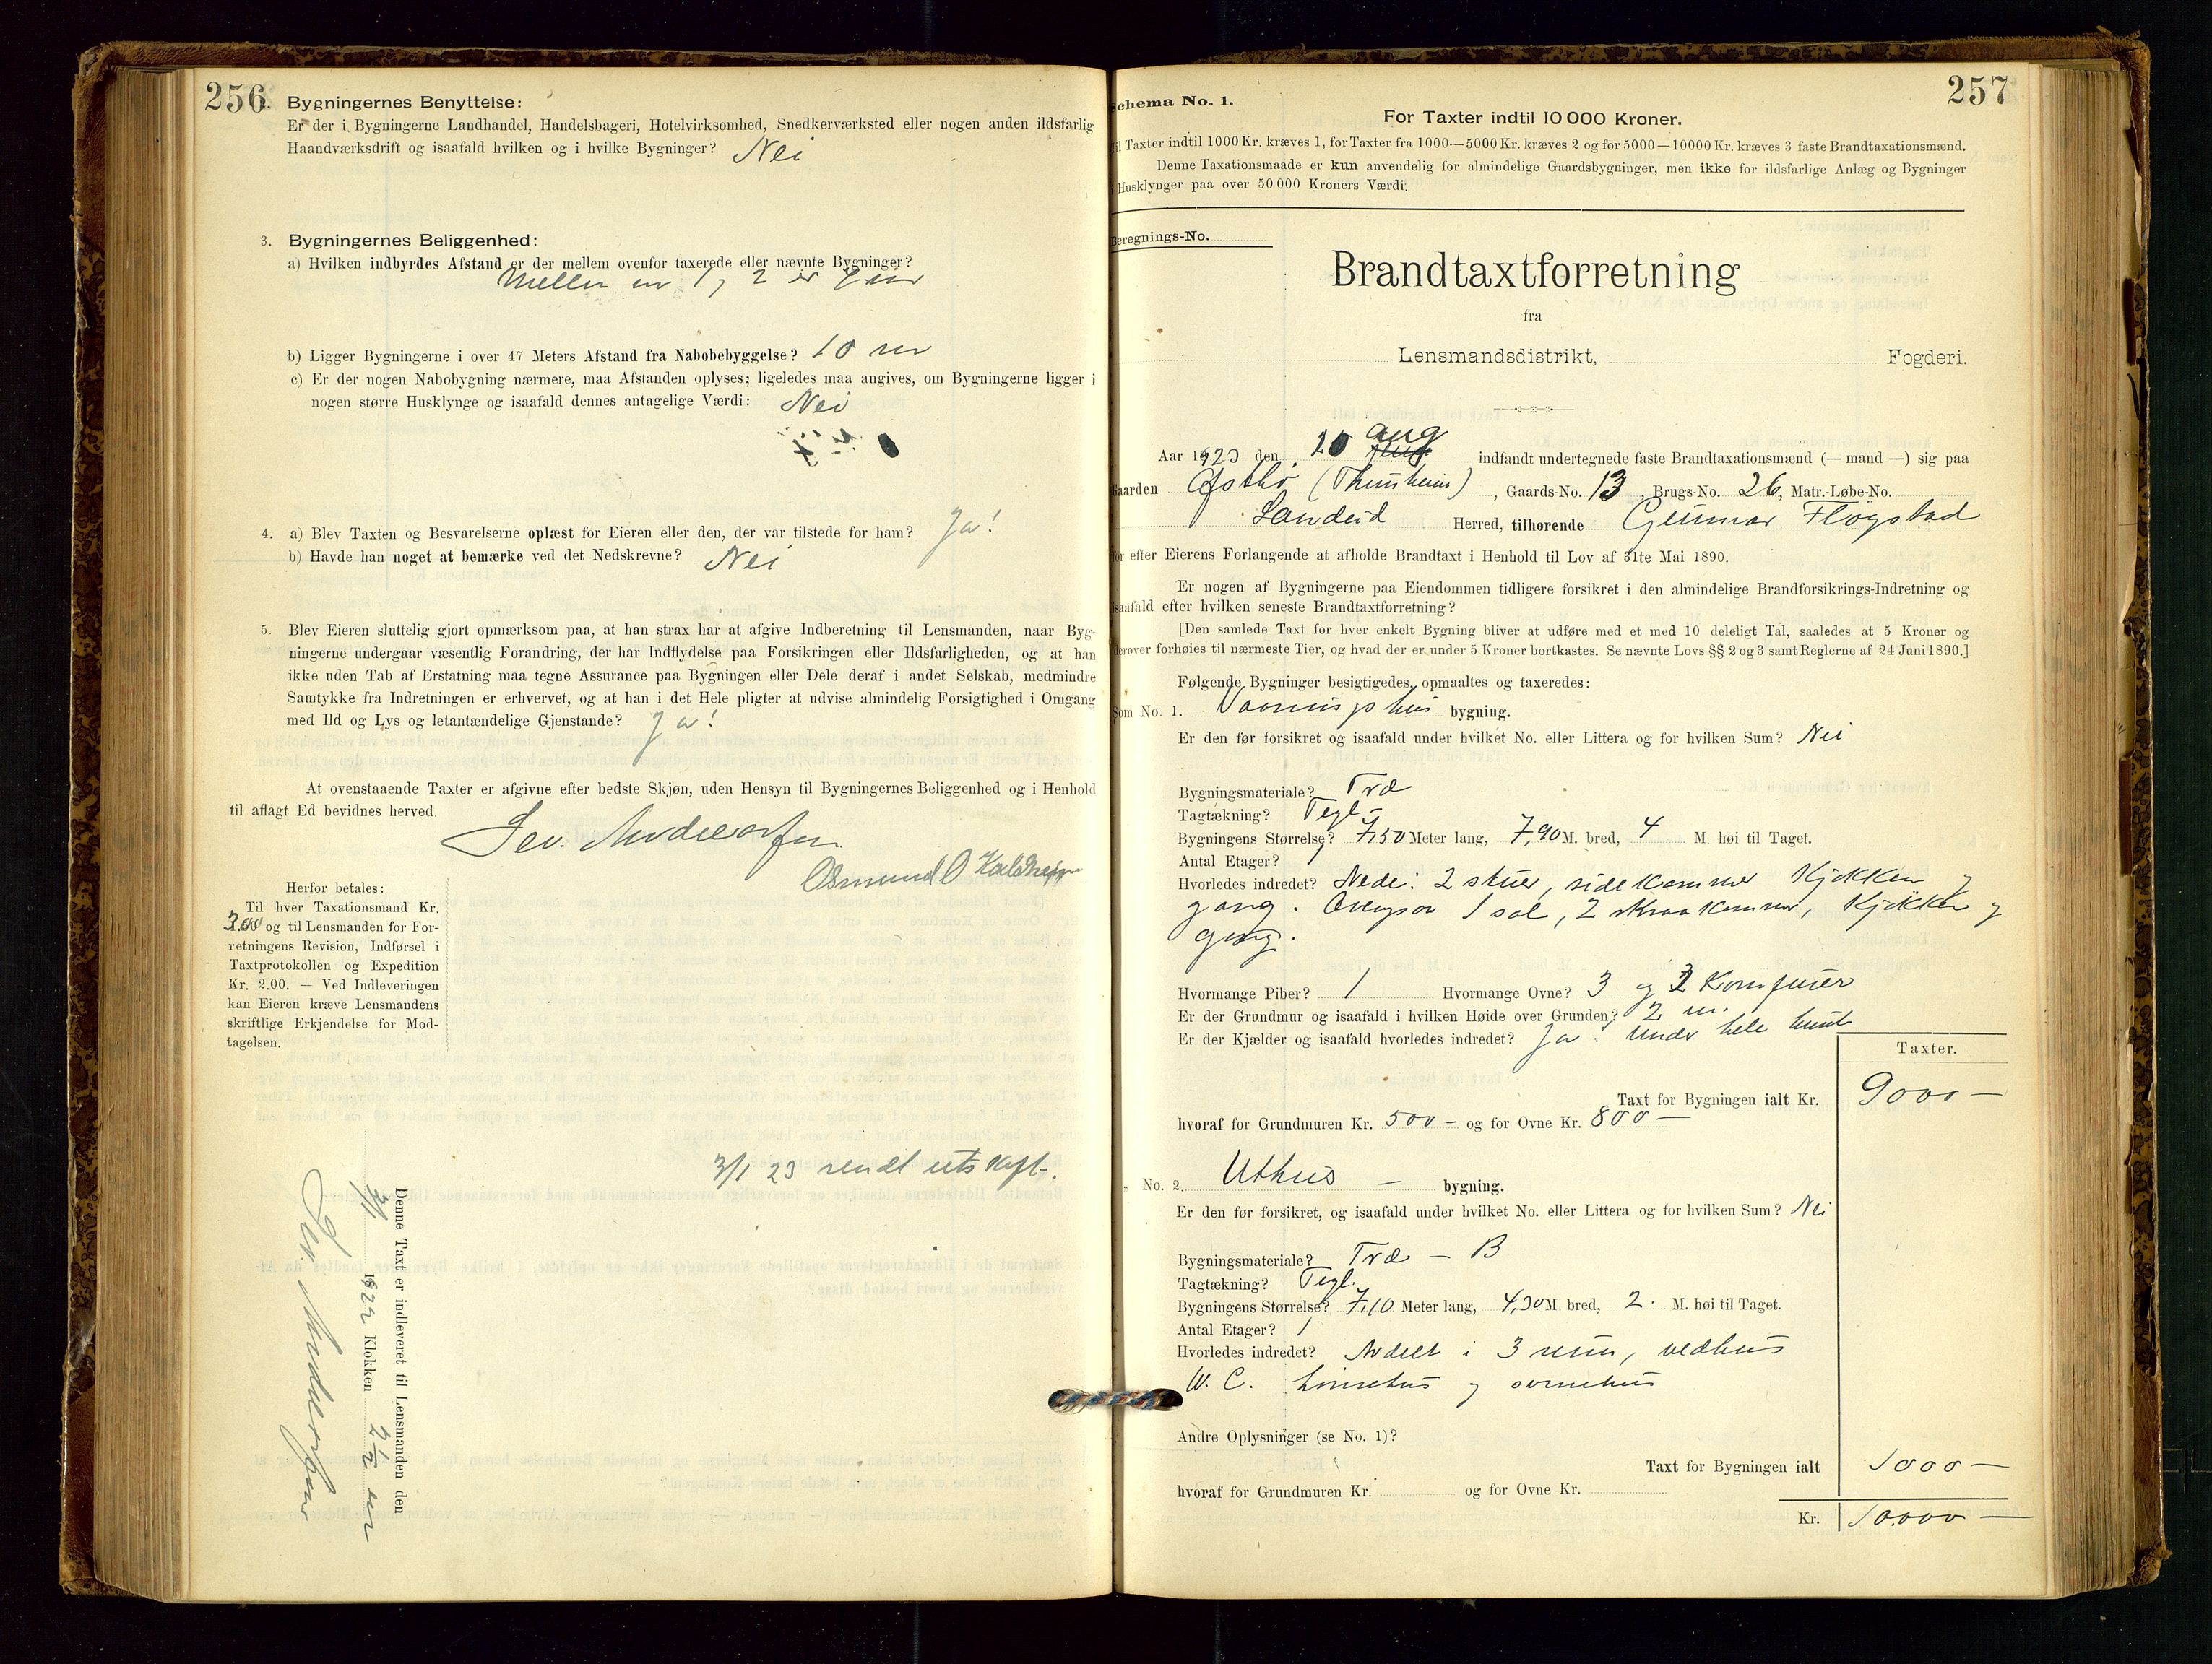 256.
Bygningernes Benyttelse:
Er der i Bygningerne Landhandel, Handelsbageri, Hotelvirksomhed, Snedkerværksted eller nogen anden ildsfarlig
Haandværksdrift og isaafald hvilken og i hvilke Bygninger? Nei
3. Bygningernes Beliggenhed:
a) Hvilken indbyrdes Afstand er der mellem ovenfor taxerede eller nævnte Bygninger?
Mellem nr 1 og 2 er
b) Ligger Bygningerne i over 47 Meters Afstand fra Nabobebyggelse? 10 m
c) Er der nogen Nabobygning nærmere, maa Afstanden oplyses; ligeledes maa angives, om Bygningerne ligger i
nogen større Husklynge og isaafald dennes antagelige Værdi: Nei
4. a) Blev Taxten og Besvarelserne oplæst for Eieren eller den, der var tilstede for ham? Ja!
b) Havde han noget at bemærke ved det Nedskrevne? Nei
5. Blev Eieren sluttelig gjort opmærksom paa, at han strax har at afgive Indberetning til Lensmanden, naar Byg-
ningerne undergaar væsentlig Forandring, der har Indflydelse paa Forsikringen eller Ildsfarligheden, og at han
ikke uden Tab af Erstatning maa tegne Assurance paa Bygningen eller Dele deraf i andet Selskab, medmindre
Samtykke fra Indretningen er erhvervet, og at han i det Hele pligter at udvise almindelig Forsigtighed i Omgang
med Ild og Lys og letantændelige Gjenstande? Ja!
At ovenstaaende Taxter er afgivne efter bedste Skjøn, uden Hensyn til Bygningernes Beliggenhed og i Henhold
til aflagt Ed bevidnes herved.
Sev. Andersen
Osmund O Kaldheim
Herfor betales:
Til hver Taxationsmand Kr.
3.00 og til Lensmanden for For-
retningens Revision, Indførsel i
Taxtprotokollen og Expedition
Kr. 2.00. — Ved Indleveringen
kan Eieren kræve Lensmandens
skriftlige Erkjendelse for Mod-
tagelsen.
3/1 23 sendt utskrft.
Denne Taxt er indleveret til Lensmanden den
3/1 1922 Klokken 2½ em
Sev. Andersen
257
Schema No. 1.
For Taxter indtil 10 000 Kroner.
Til Taxter indtil 1000 Kr. kræves 1, for Taxter fra 1000—5000 Kr. kræves 2 og for 5000—10000 Kr. kræves 3 faste Brandtaxationsmænd.
Denne Taxationsmaade er kun anvendelig for almindelige Gaardsbygninger, men ikke for ildsfarlige Anlæg og Bygninger
i Husklynger paa over 50 000 Kroners Værdi.
Beregnings-No.
Brandtaxtforretning
fra
Lensmandsdistrikt, Fogderi.
Aar 1923 den 20 aug indfandt undertegnede faste Brandtaxationsmænd (— mand —) sig paa
Gaarden Østbø, Gaards-No. 13, Brugs-No. 26, Matr.-Løbe-No.
Sandeid Herred, tilhørende Gunnar Flogstad
for efter Eierens Forlangende at afholde Brandtaxt i Henhold til Lov af 31te Mai 1890.
Er nogen af Bygningerne paa Eiendommen tidligere forsikret i den almindelige Brandforsikrings-Indretning og
isaafald efter hvilken seneste Brandtaxtforretning?
[Den samlede Taxt for hver enkelt Bygning bliver at udføre med et med 10 deleligt Tal, saaledes at 5 Kroner og
derover forhøies til nærmeste Tier, og hvad der er under 5 Kroner bortkastes. Se nævnte Lovs §§ 2 og 3 samt Reglerne af 24 Juni 1890.]
Følgende Bygninger besigtigedes, opmaaltes og taxeredes:
Som No. 1. Vaaningshus bygning.
Er den før forsikret og isaafald under hvilket No. eller Littera og for hvilken Sum? Nei
Bygningsmateriale? Træ
Tagtækning? Tegl.
Bygningens Størrelse? 7,50 Meter lang, 7,90 M. bred, 4 M. høi til Taget.
Antal Etager? 1
Hvorledes indredet? Nede: 2 stuer, sidekammer Kjøkken og
gang. Ovenpaa 1 sal, 2 skraakammer, Kjøkken og
gang.
Hvormange Piber? 1 Hvormange Ovne? 3 og 2 Komfurer
Er der Grundmur og isaafald i hvilken Høide over Grunden? 2 m.
Er der Kjælder og isaafald hvorledes indredet? Ja! under hele huset
Taxter.
Taxt for Bygningen ialt Kr. 9000 —
hvoraf for Grundmuren Kr. 500 — og for Ovne Kr. 800 —
" No. 2. Uthus — bygning.
Er den før forsikret, og isaafald under hvilket No. eller Littera og for hvilken Sum? Nei
Bygningsmateriale? Træ — B
Tagtækning? Tegl.
Bygningens Størrelse? 7,10 Meter lang, 4,30 M bred, 2. M. høi til Taget.
Antal Etager? 1
Hvorledes indredet? Avdelt i 3 rum, vedhus
W. C. hønsehus og
Andre Oplysninger (se No. 1)?
Taxt for Bygningen ialt 1000 —
hvoraf for Grundmuren Kr. og for Ovne Kr.
Kr. 10.000 —